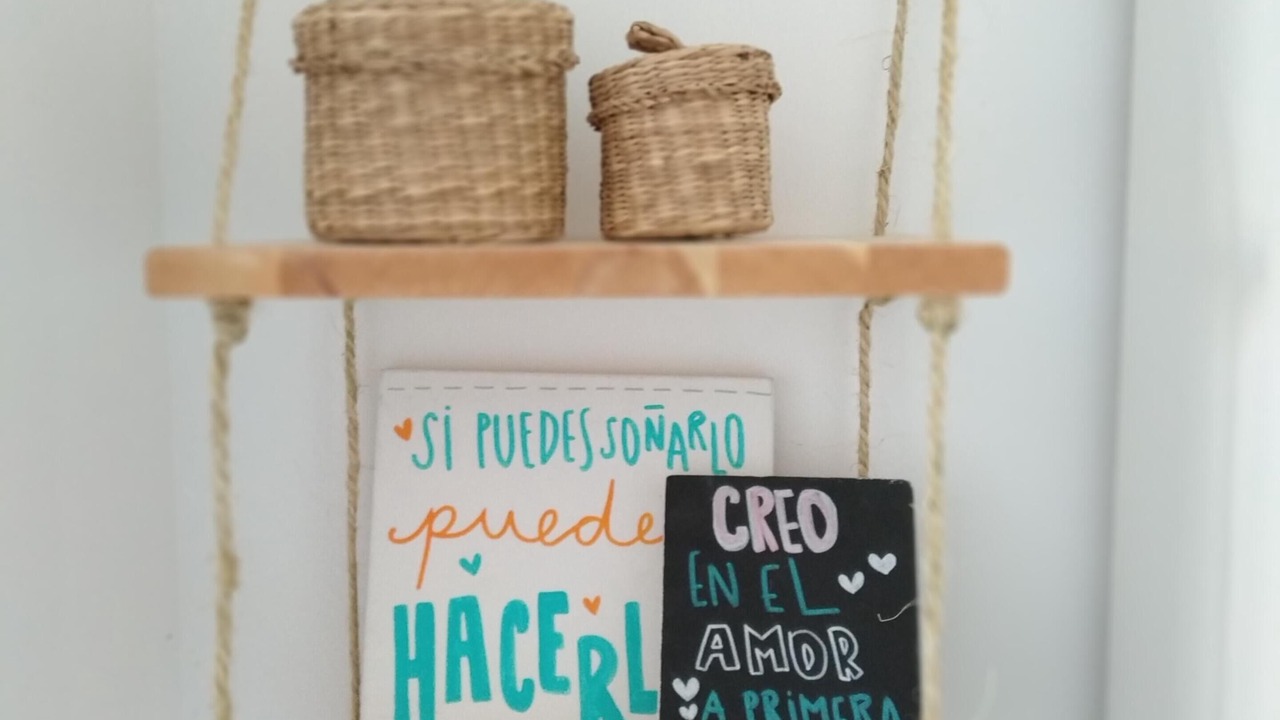 Si PUEDES SOÑARLO
puede
HACERL
CREO
EN EL
AMOR
A PRiMERA